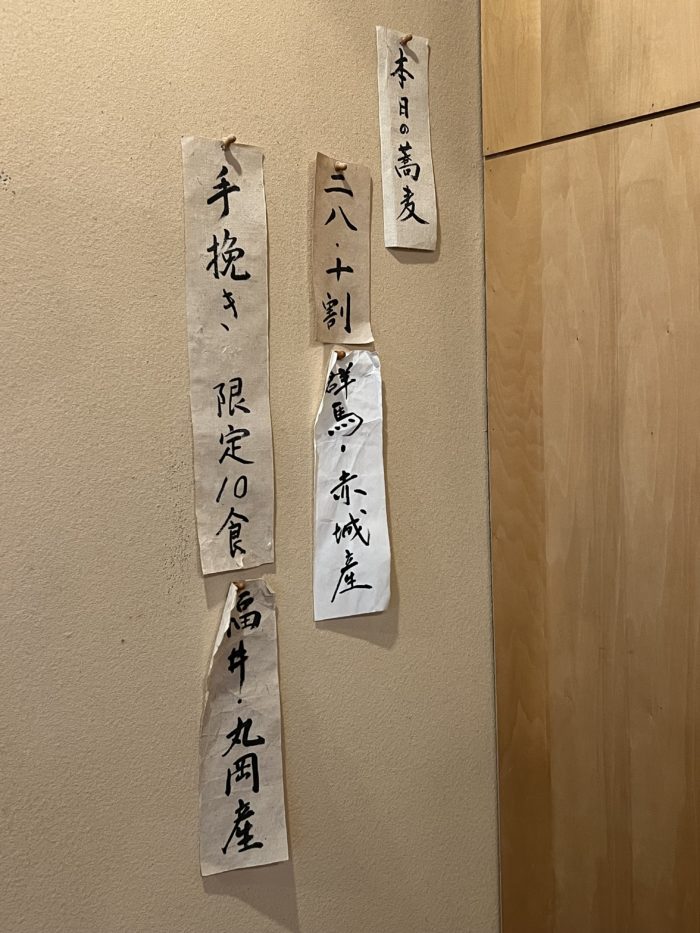 本日の蕎麦
二八・十割
群馬・赤城産
手挽き、限定10食
福井・丸岡産